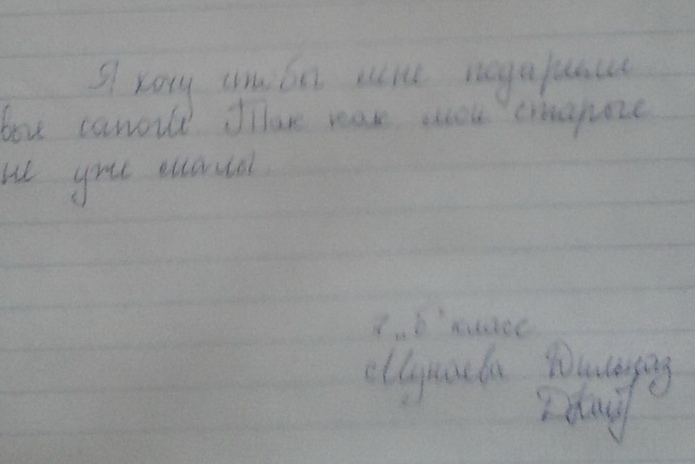 Я хочу чтобы мне подарили
вые сапоги. Так как мои старые
не уже малы
7 "Б" класс
Мунаева Дильназ